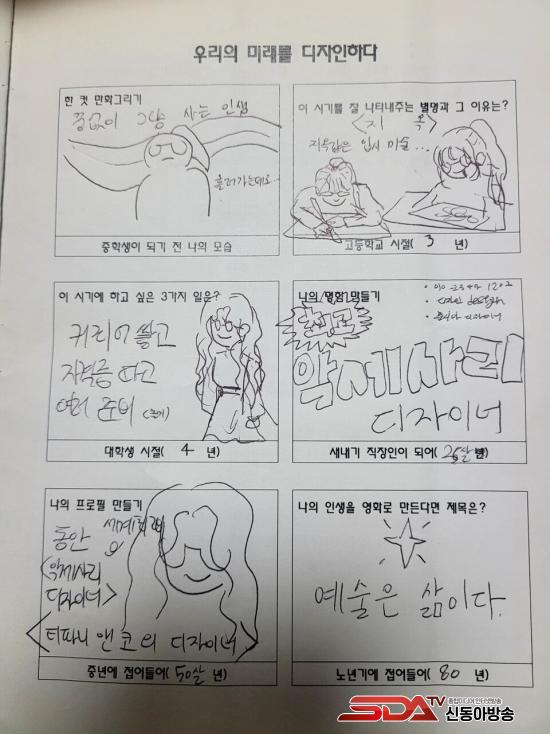 우리의 미래를 디자인하다
한 컷 만화그리기
꿈없이 그냥 사는 인생
흘러가는대로..
중학생이 되기 전 나의 모습
이 시기를 잘 나타내주는 별명과 그 이유는?
<지 옥>
지옥같은 입시 미술...
고등학교 시절( 3 년)
이 시기에 하고 싶은 3가지 일은?
커리어 쌓고
자격증 따고
여러 준비
대학생 시절( 4 년)
나의 명함 만들기
최고
악세사리
디자이너
새내기 직장인이 되어( 25살
나의 프로필 만들기
동안
<악세사리
디자이너>
<티파니 앤 코의 디자이너>
중년에 접어들어( 50살 년)
나의 인생을 영화로 만든다면 제목은?
예술은 삶이다.
노년기에 접어들어( 80 년)
SDA TV
종합미디어 인터넷방송
신동아방송